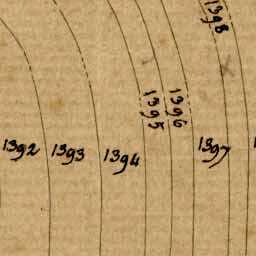 1398
1395
1396
1392
1393
1394
1397